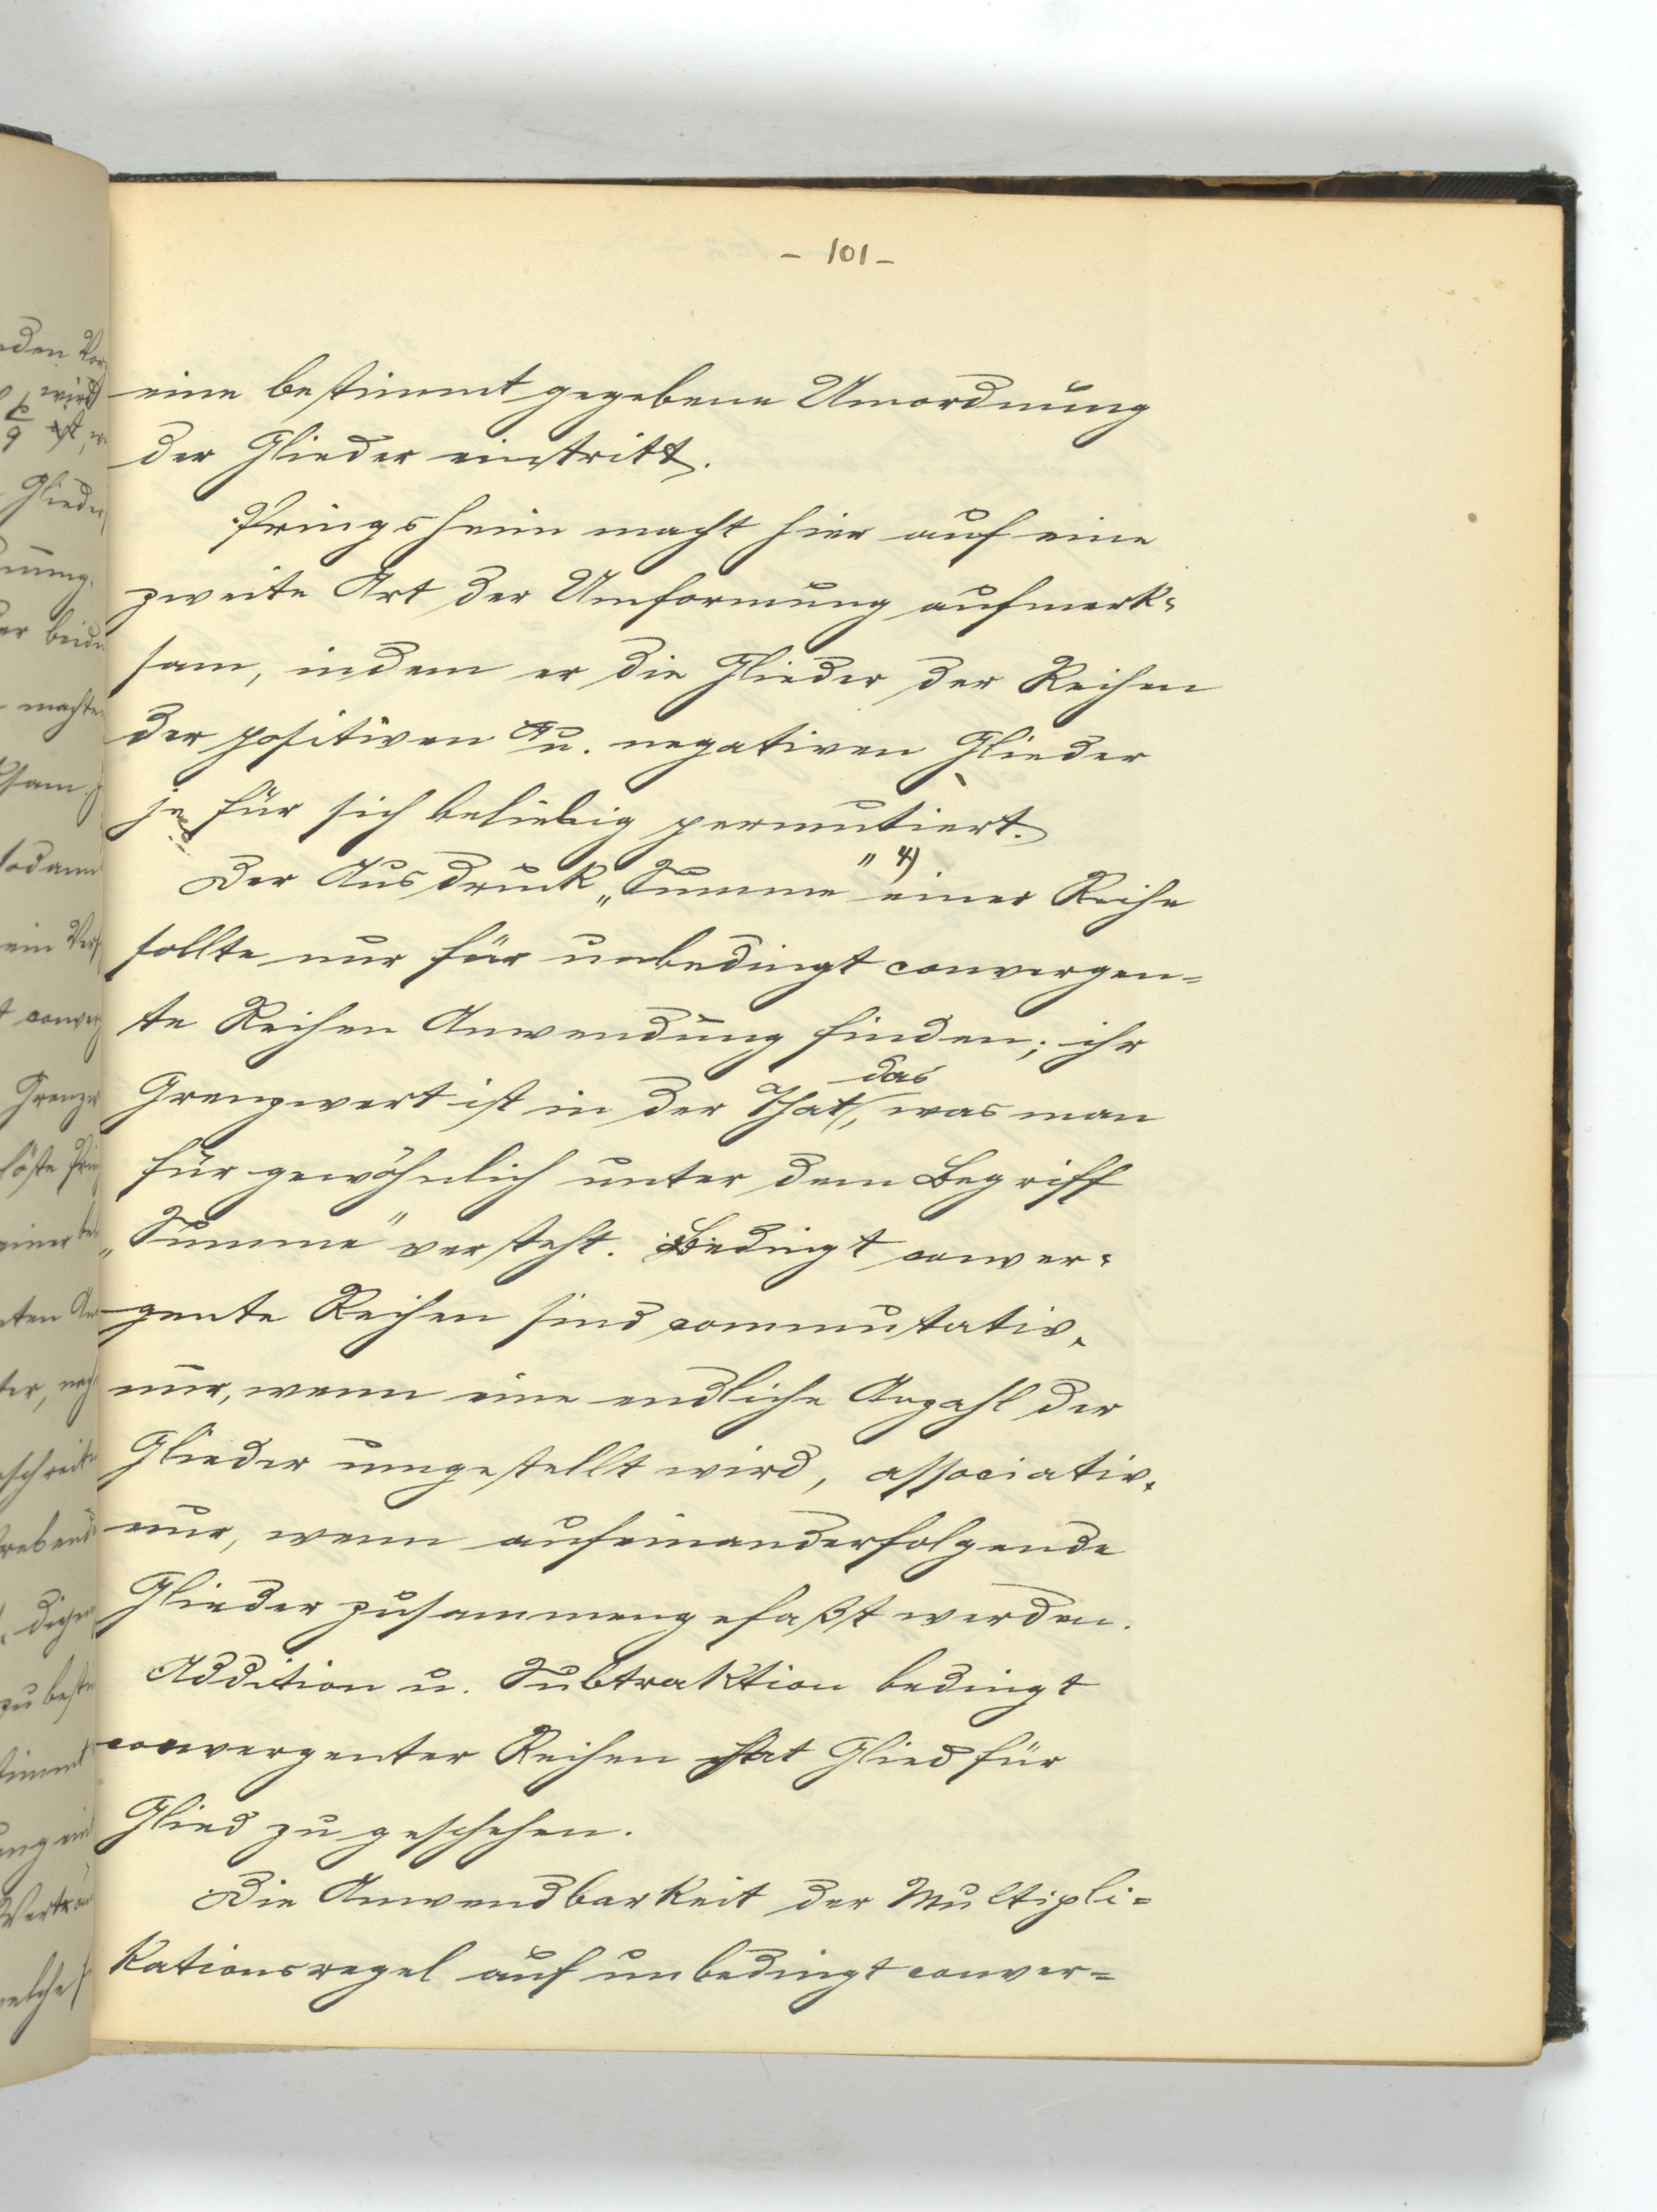 - 101 -
eine bestimmt gegebene Umordnung
der Glieder eintritt.
Pringsheim macht hier auf eine
zweite Art der Umformung aufmerk-
sam, indem er die Glieder der Reihen
der positiven u. negativen Glieder
je für sich beliebig permutiert.
Der Ausdruck „Summe" 4) einer Reihe
sollte nur für unbedingt convergen-
te Reihen Anwendung finden; ihr
Grenzwert ist in der That, das was man
für gewöhnlich unter dem Begriff
„Summe" versteht. Bedingt conver-
gente Reihen sind commutativ,
nur, wenn eine endliche Anzahl der
Glieder umgestellt wird, associativ,
nur, wenn aufeinanderfolgende
Glieder zusammengefaßt werden.
Addition u. Subtraktion bedingt
convergenter Reihen hat Glied für
Glied zu geschehen.
Die Anwendbarkeit der Multipli-
kationsregel auf unbedingt conver-